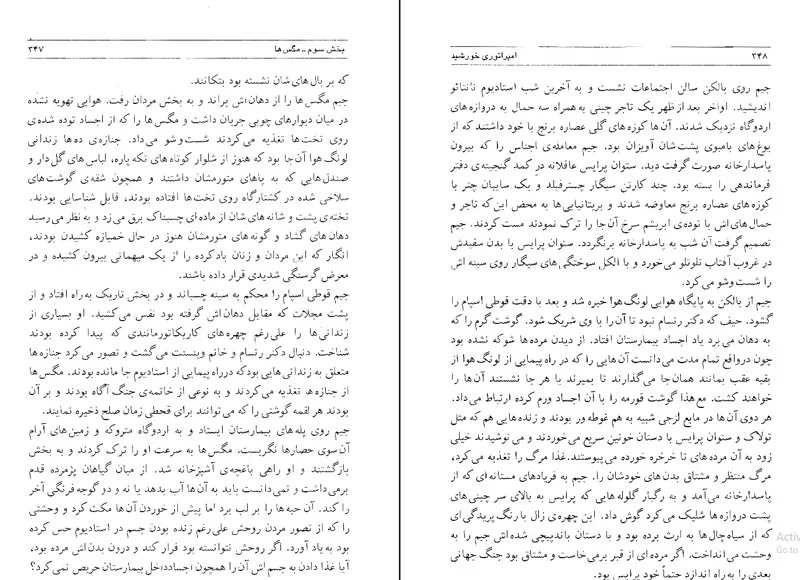 بخش سوم ــ مگس‌ها ۳۴۷
که بر بال‌های‌شان نشسته بود بتکانند.
جیم مگس‌ها را از دهان‌اش پراند و به بخش مردان رفت. هوایی تهویه نشده
در میان دیوارهای چوبی جریان داشت و مگس‌ها را که از اجساد توده شده‌ی
روی تخت‌ها تغذیه می‌کردند شست‌وشو می‌داد. جنازه‌ی ده‌ها زندانی
لونگ‌هوا آن‌جا بود که هنوز از شلوار کوتاه‌های تکه پاره، لباس‌های گل‌دار و
صندل‌هایی که به پاهای متورمشان داشتند و همچون شقه‌ی گوشت‌های
سلاخی شده در کشتارگاه روی تخت‌ها افتاده بودند، قابل شناسایی بودند.
تخته‌ی پشت و شانه های شان از ماده‌ای چسبناک برق می‌زد و به نظر می‌رسید
دهان‌های گشاد و گونه‌های متورمشان هنوز در حال خمیازه کشیدن بودند،
انگار که این مردان و زنان بادکرده را از یک میهمانی بیرون کشیده و در
معرض گرسنگی شدیدی قرار داده باشند.
جیم قوطی اسپام را محکم به سینه چسباند و در بخش تاریک به راه افتاد و از
پشت مجلات که مقابل دهان‌اش گرفته بود نفس می‌کشید. او بسیاری از
زندانی‌ها را علی‌رغم چهره‌های کاریکاتورمانندی که پیدا کرده بودند
شناخت. دنبال دکتر رنسام و خانم وینسنت می‌گشت و تصور می‌کرد جنازه‌ها
متعلق به زندانی‌هایی بود که در راه پیمایی از استادیوم جا مانده بودند. مگس‌ها
از جنازه‌ها تغذیه می‌کردند و به نوعی از خاتمه‌ی جنگ آگاه بودند و بر آن
بودند هر لقمه گوشتی را که می‌توانند برای قحطی زمان صلح ذخیره نمایند.
جیم روی پله‌های بیمارستان ایستاد و به اردوگاه متروکه و زمین‌های آرام
آن سوی حصارها نگریست. مگس‌ها به سرعت او را ترک کردند و به بخش
بازگشتند و او راهی باغچه‌ی آشپزخانه شد. از میان گیاهان پژمرده قدم
برمی‌داشت و نمی‌دانست باید به آن‌ها آب بدهد یا نه و دو گوجه فرنگی آخر
را کند. آن حبه‌ها را بر لب برد اما پیش از خوردن آن‌ها مکث کرد و وحشتی
را که از تصور مردن روحش علی‌رغم زنده بودن جسم در استادیوم حس کرده
بود به یاد آورد. اگر روحش نتوانسته بود فرار کند و درون بدن‌اش مرده بود،
آیا غذا دادن به جسم‌اش آن را همچون اجساد داخل بیمارستان حریص نمی‌کرد؟
۳۴۸ امپراتوری خورشید
جیم روی بالکن سالن اجتماعات نشست و به آخرین شب استادیوم نانتائو
اندیشید. اواخر بعد از ظهر یک تاجر چینی به همراه سه حمال به دروازه های
اردوگاه نزدیک شدند. آن‌ها کوزه‌های گلی عصاره برنج با خود داشتند که از
یوغ‌های بامبوی پشت‌شان آویزان بود. جیم معامله‌ی اجناس را که بیرون
پاسدارخانه صورت گرفت دید. ستوان پرایس عاقلانه در کمد گنجینه‌ی دفتر
فرماندهی را بسته بود. چند کارتن سیگار چسترفیلد و یک سایبان چتر با
کوزه‌های عصاره برنج معاوضه شدند و بریتانیایی‌ها به محض این که تاجر و
حمال‌های‌اش با توده‌ی ابریشم سرخ آن‌جا را ترک نمودند مست کردند. جیم
تصمیم گرفت آن شب به پاسدارخانه برنگردد. ستوان پرایس با بدن سفیدش
در غروب آفتاب تلوتلو می‌خورد و با الکل سوختگی‌های سیگار روی سینه اش
را شست‌وشو می‌کرد.
جیم از بالکن به پایگاه هوایی لونگ‌هوا خیره شد و بعد با دقت قوطی اسپام را
گشود. حیف که دکتر رنسام نبود تا آن‌را با وی شریک شود. گوشت گرم را که
به دهان می‌برد یاد اجساد بیمارستان افتاد. از دیدن مرده‌ها شوکه نشده بود
چون درواقع تمام مدت می‌دانست آن‌هایی را که در راه پیمایی از لونگ هوا از
بقیه عقب بمانند همان‌جا می‌گذارند تا بمیرند یا هر جا نشستند آن‌ها را
خواهند کشت. مع‌هذا گوشت قورمه را با آن اجساد ورم کرده ارتباط می‌داد.
هر دوی آن‌ها در مایع لزجی شبیه به هم غوطه ور بودند و زنده‌هایی هم که مثل
تولاک و ستوان پرایس با دستان خونین سریع می‌خوردند و می نوشیدند خیلی
زود به آن مرده های تا خرخره خورده می‌پیوستند. غذا مرگ را تغذیه می‌کرد،
مرگ منتظر و مشتاق بدن‌های خودشان را. جیم به فریادهای مستانه‌ای که از
پاسدارخانه می‌آمد و به رگبار گلوله‌هایی که پرایس به بالای سر چینی های
پشت دروازه ها شلیک می‌کرد گوش داد. این چهره‌ی زال با رنگ‌پریدگی‌ای
که از سیاه‌چال‌ها به ارث برده بود و با دستان باندپیچی شده‌اش جیم را به
وحشت می‌انداخت. اگر مرده ای از قبر برمی‌خاست و مشتاق بود جنگ جهانی
بعدی را به راه اندازد حتماً خود پرایس بود.
Activ
Go to